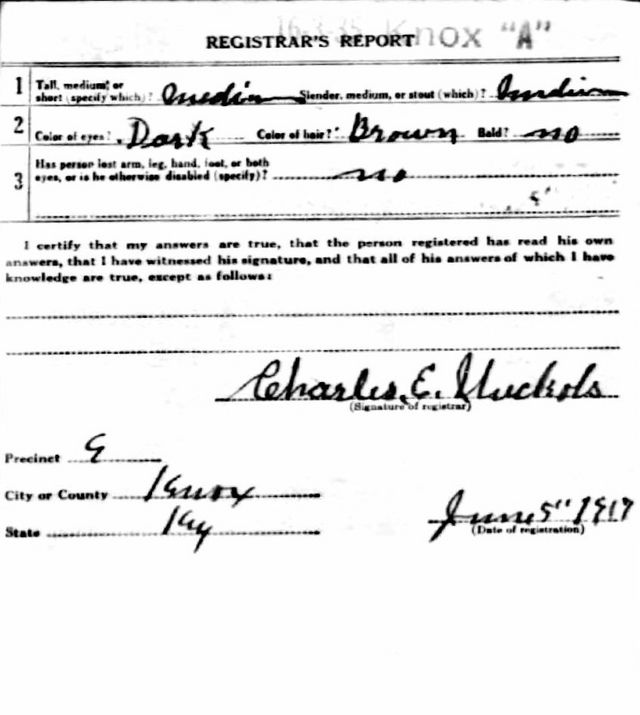 16-3-35 Knox "A"
REGISTRAR'S REPORT
1 Tall, medium, or short (specify which)? medium Slender, medium, or stout (which)? medium
2 Color of eyes? Dark Color of hair? Brown Bald? no
3 Has person lost arm, leg, hand, foot, or both
eyes, or is he otherwise disabled (specify)? no
I certify that my answers are true, that the person registered has read his own
answers, that I have witnessed his signature, and that all of his answers of which I have
knowledge are true, except as follows:
Charles E. Nuckols
(Signature of registrar)
Precinct E
City or County Knox
State Ky
June 5" 1917
(Date of registration)